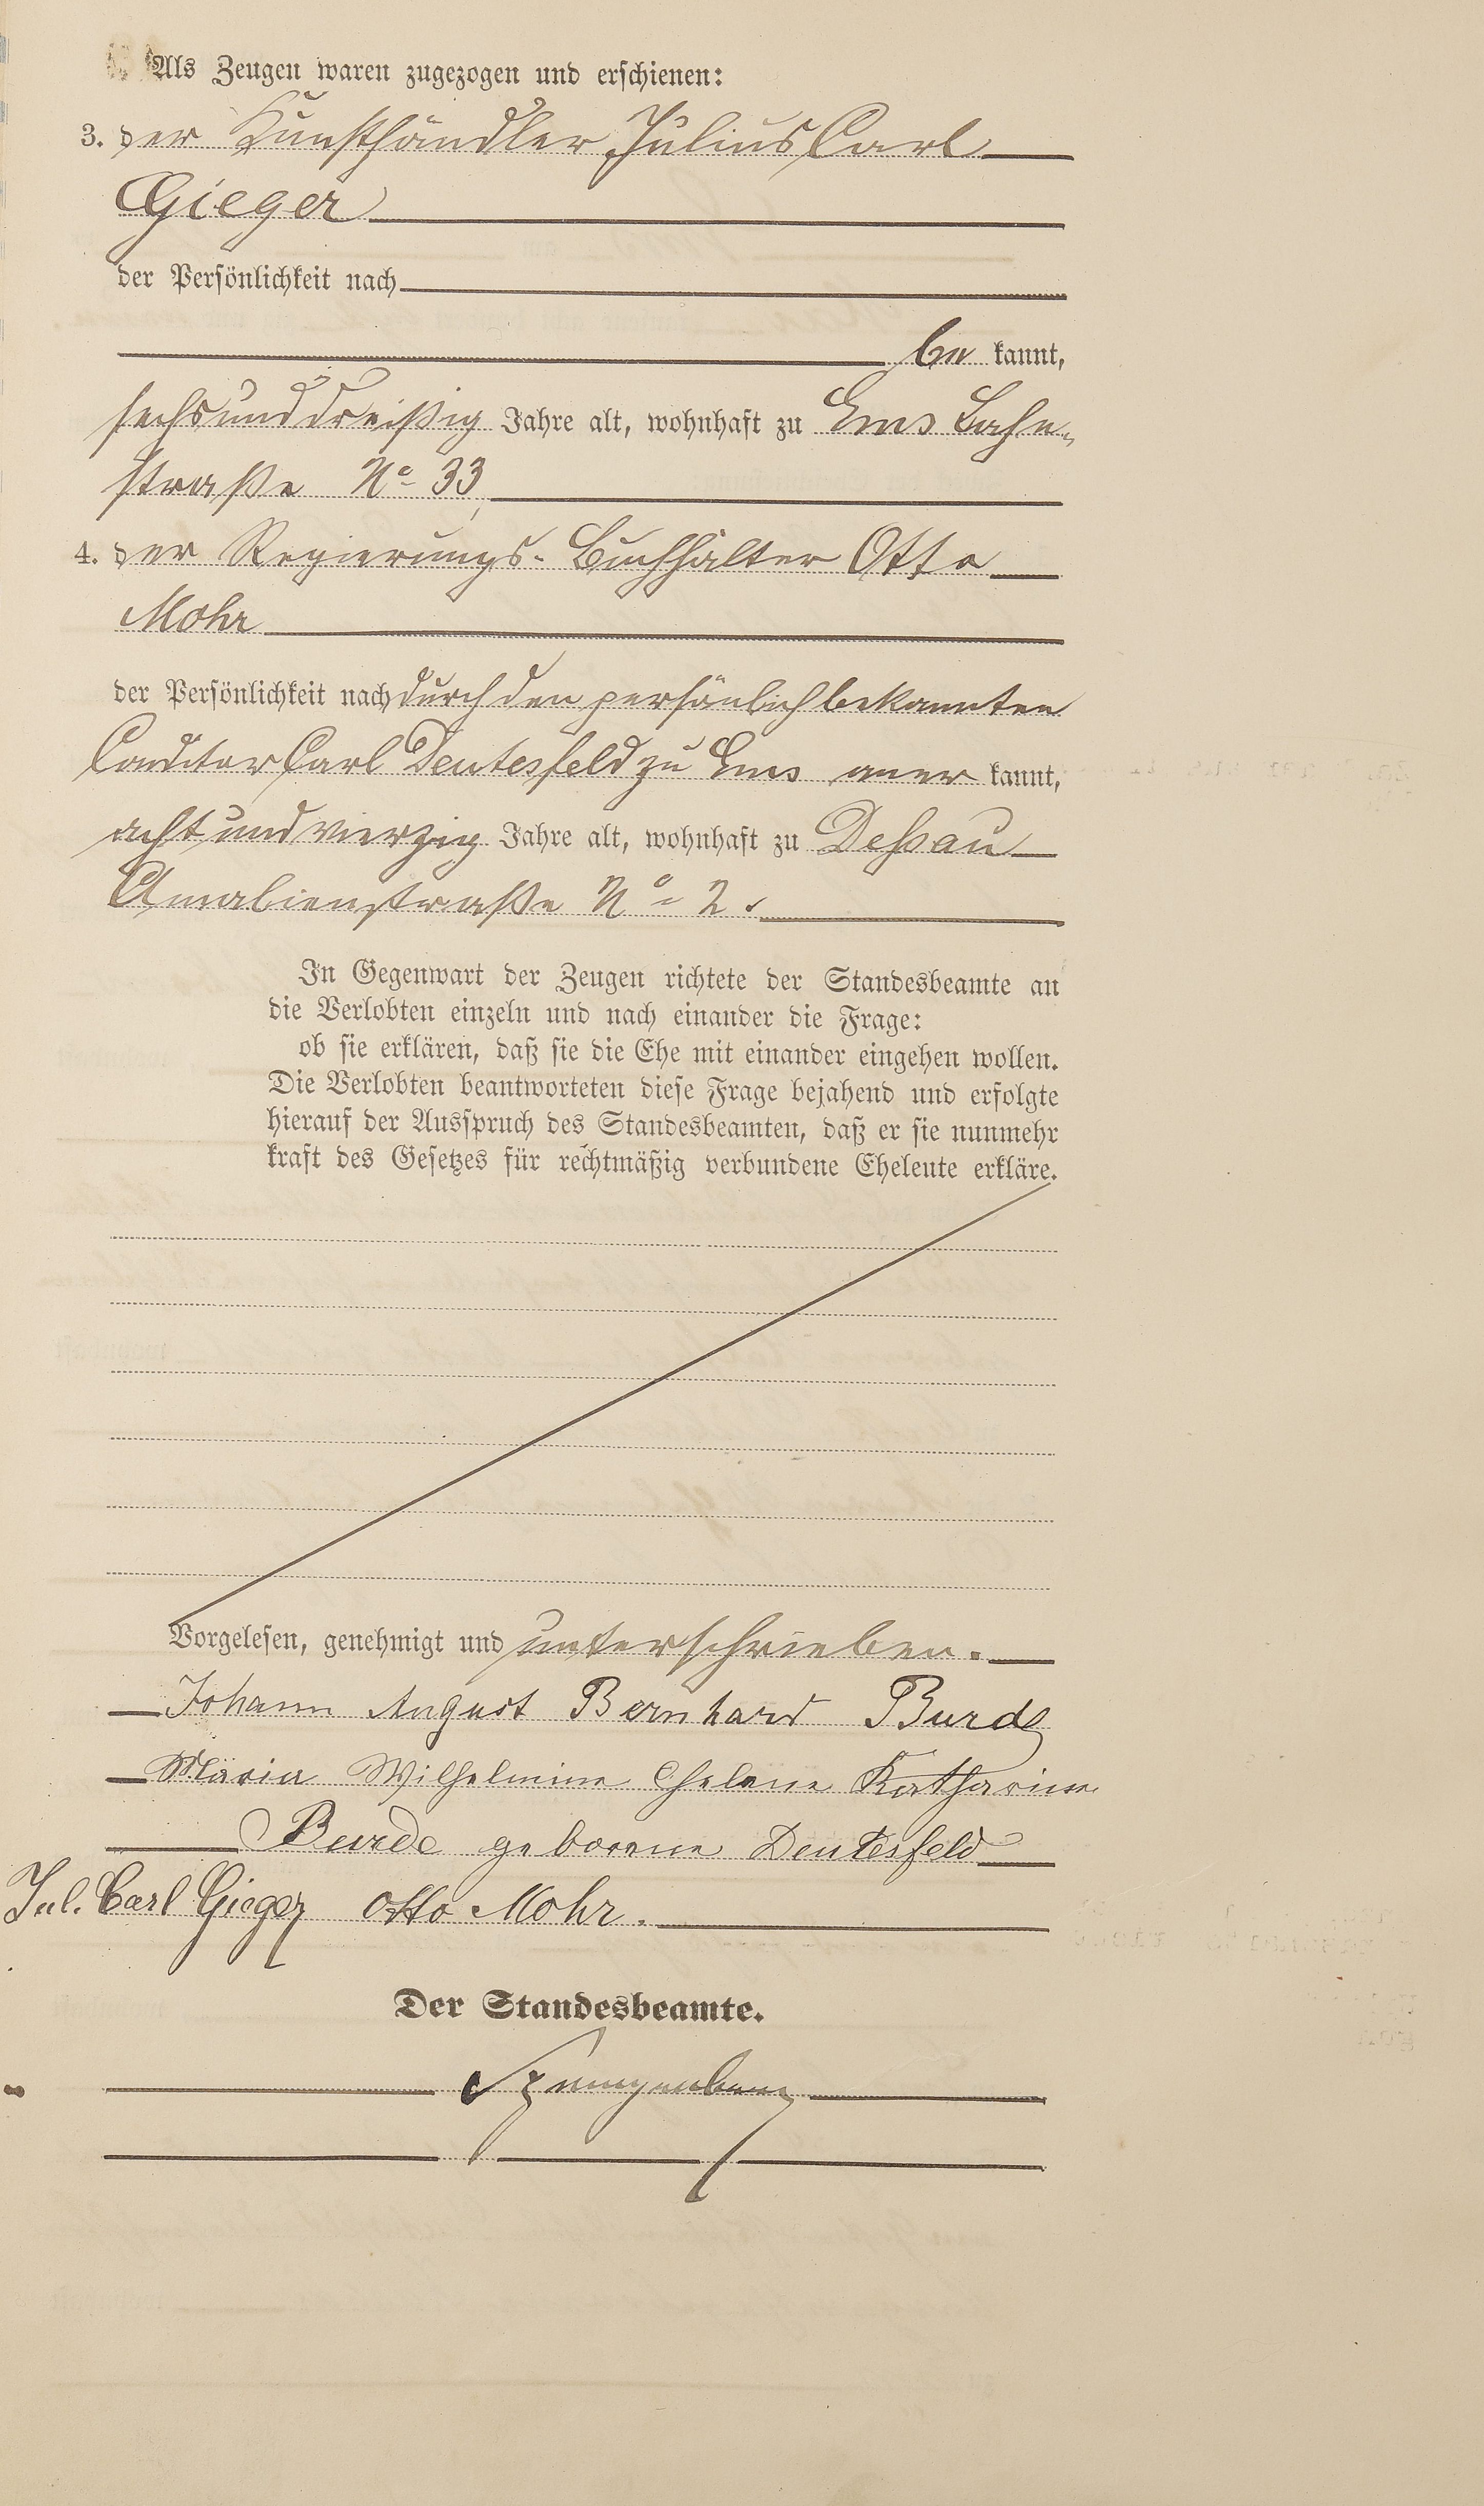 Als Zeugen waren zugezogen und erschienen:
3. der Kunsthändler Julius Carl
Gieger
der Persönlichkeit nach
be kannt,
sechs und dreißig Jahre alt, wohnhaft zu Ems Lahn-
straße No 33,
4. der Regierungs-Buchhalter Otto
Mohr
der Persönlichkeit nach durch den persönlich bekannten
Conditor Carl Deutesfeld zu Ems aner kannt,
acht und vierzig Jahre alt, wohnhaft zu Deßau
Amalienstraße No 2.
In Gegenwart der Zeugen richtete der Standesbeamte an
die Verlobten einzeln und nach einander die Frage:
ob sie erklären, daß sie die Ehe mit einander eingehen wollen.
Die Verlobten beantworteten diese Frage bejahend und erfolgte
hierauf der Ausspruch des Standesbeamten, daß er sie nunmehr
kraft des Gesetzes für rechtmäßig verbundene Eheleute erkläre.
Vorgelesen, genehmigt und unterschrieben.
Johann August Bernhard Burde
Maria Wilhelmine Helene Katharine
Burde geborene Deutesfeld
Jul. Carl Gieger Otto Mohr.
Der Standesbeamte.